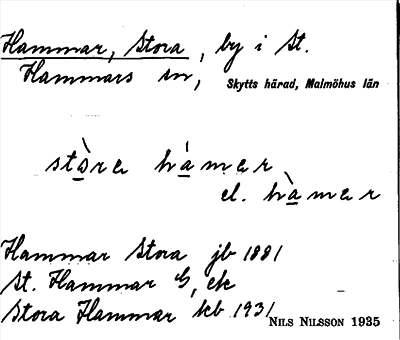 Hammar, Stora, by i St.
Hammars sn, Skytts härad, Malmöhus län
stòra hámer
el. hàmer
Hammar Stora jb 1881
St. Hammar G, ek
Stora Hammar kb 1931
NILS NILSSON 1935